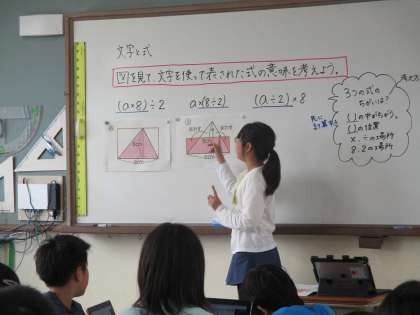 文字と式
図を見て文字を使って表された式の意味を考えよう。
(a×8)÷2
a×(8÷2)
(a÷2)×8
3つの式の
ちがいは?
( )の中がちがう。
( )の位置
×、÷の場所
8、2の場所
8cm
acm